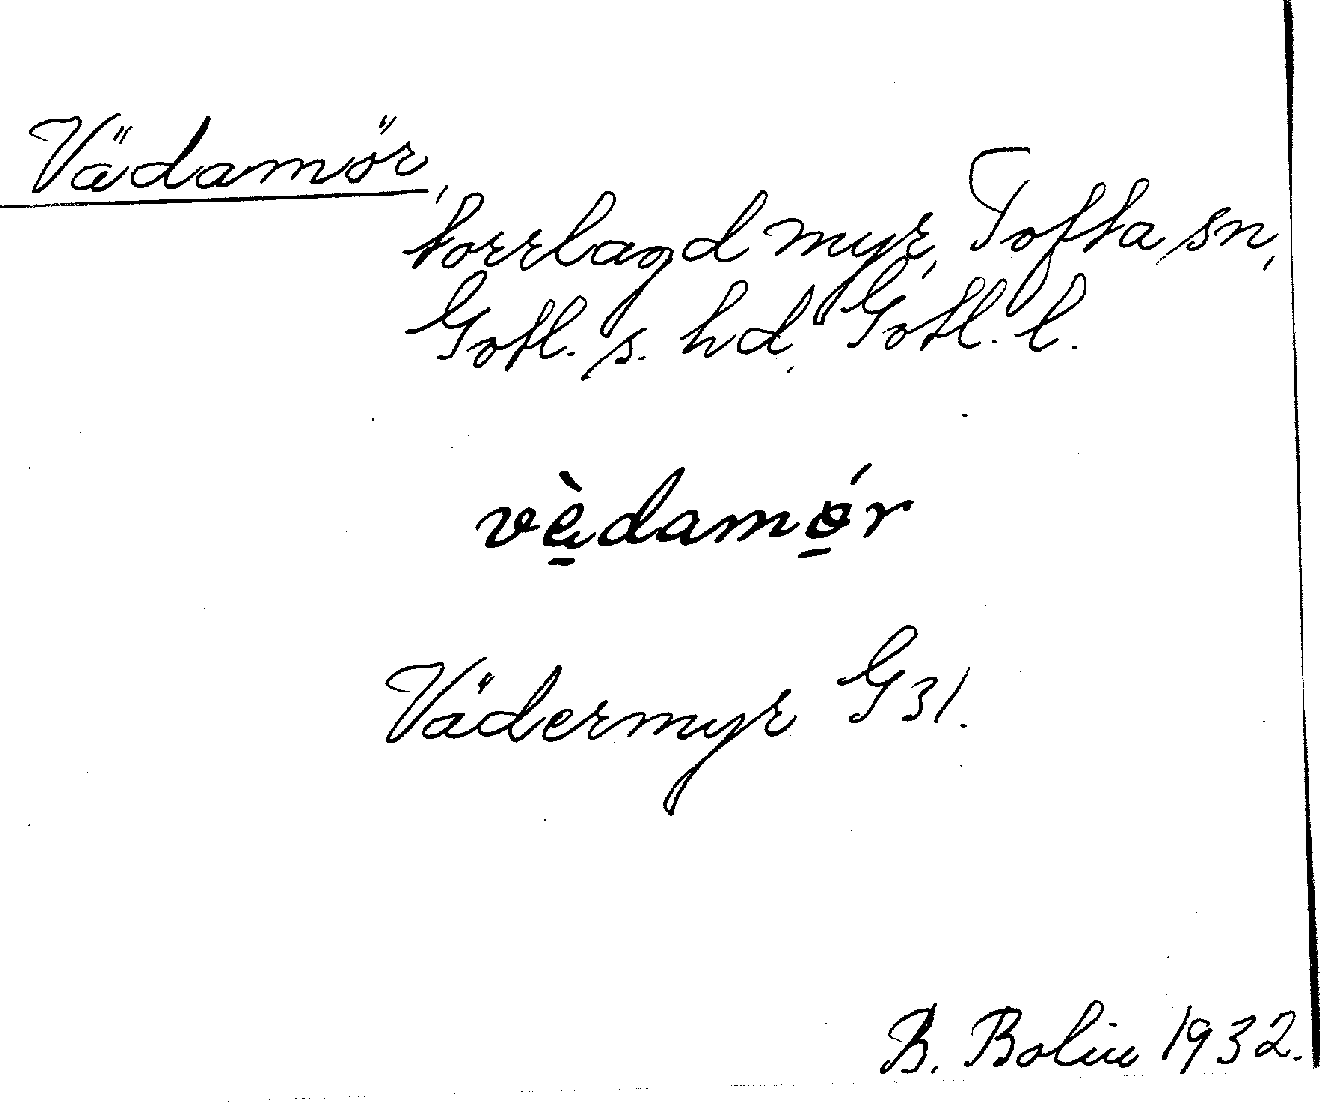 Vädamör,
torrlagd myr, Tofta sn,
Gotl. s. hd, Gotl. l.
væ̱̀damǿ̱r
Vädermyr G31.
B. Bolin 1932.